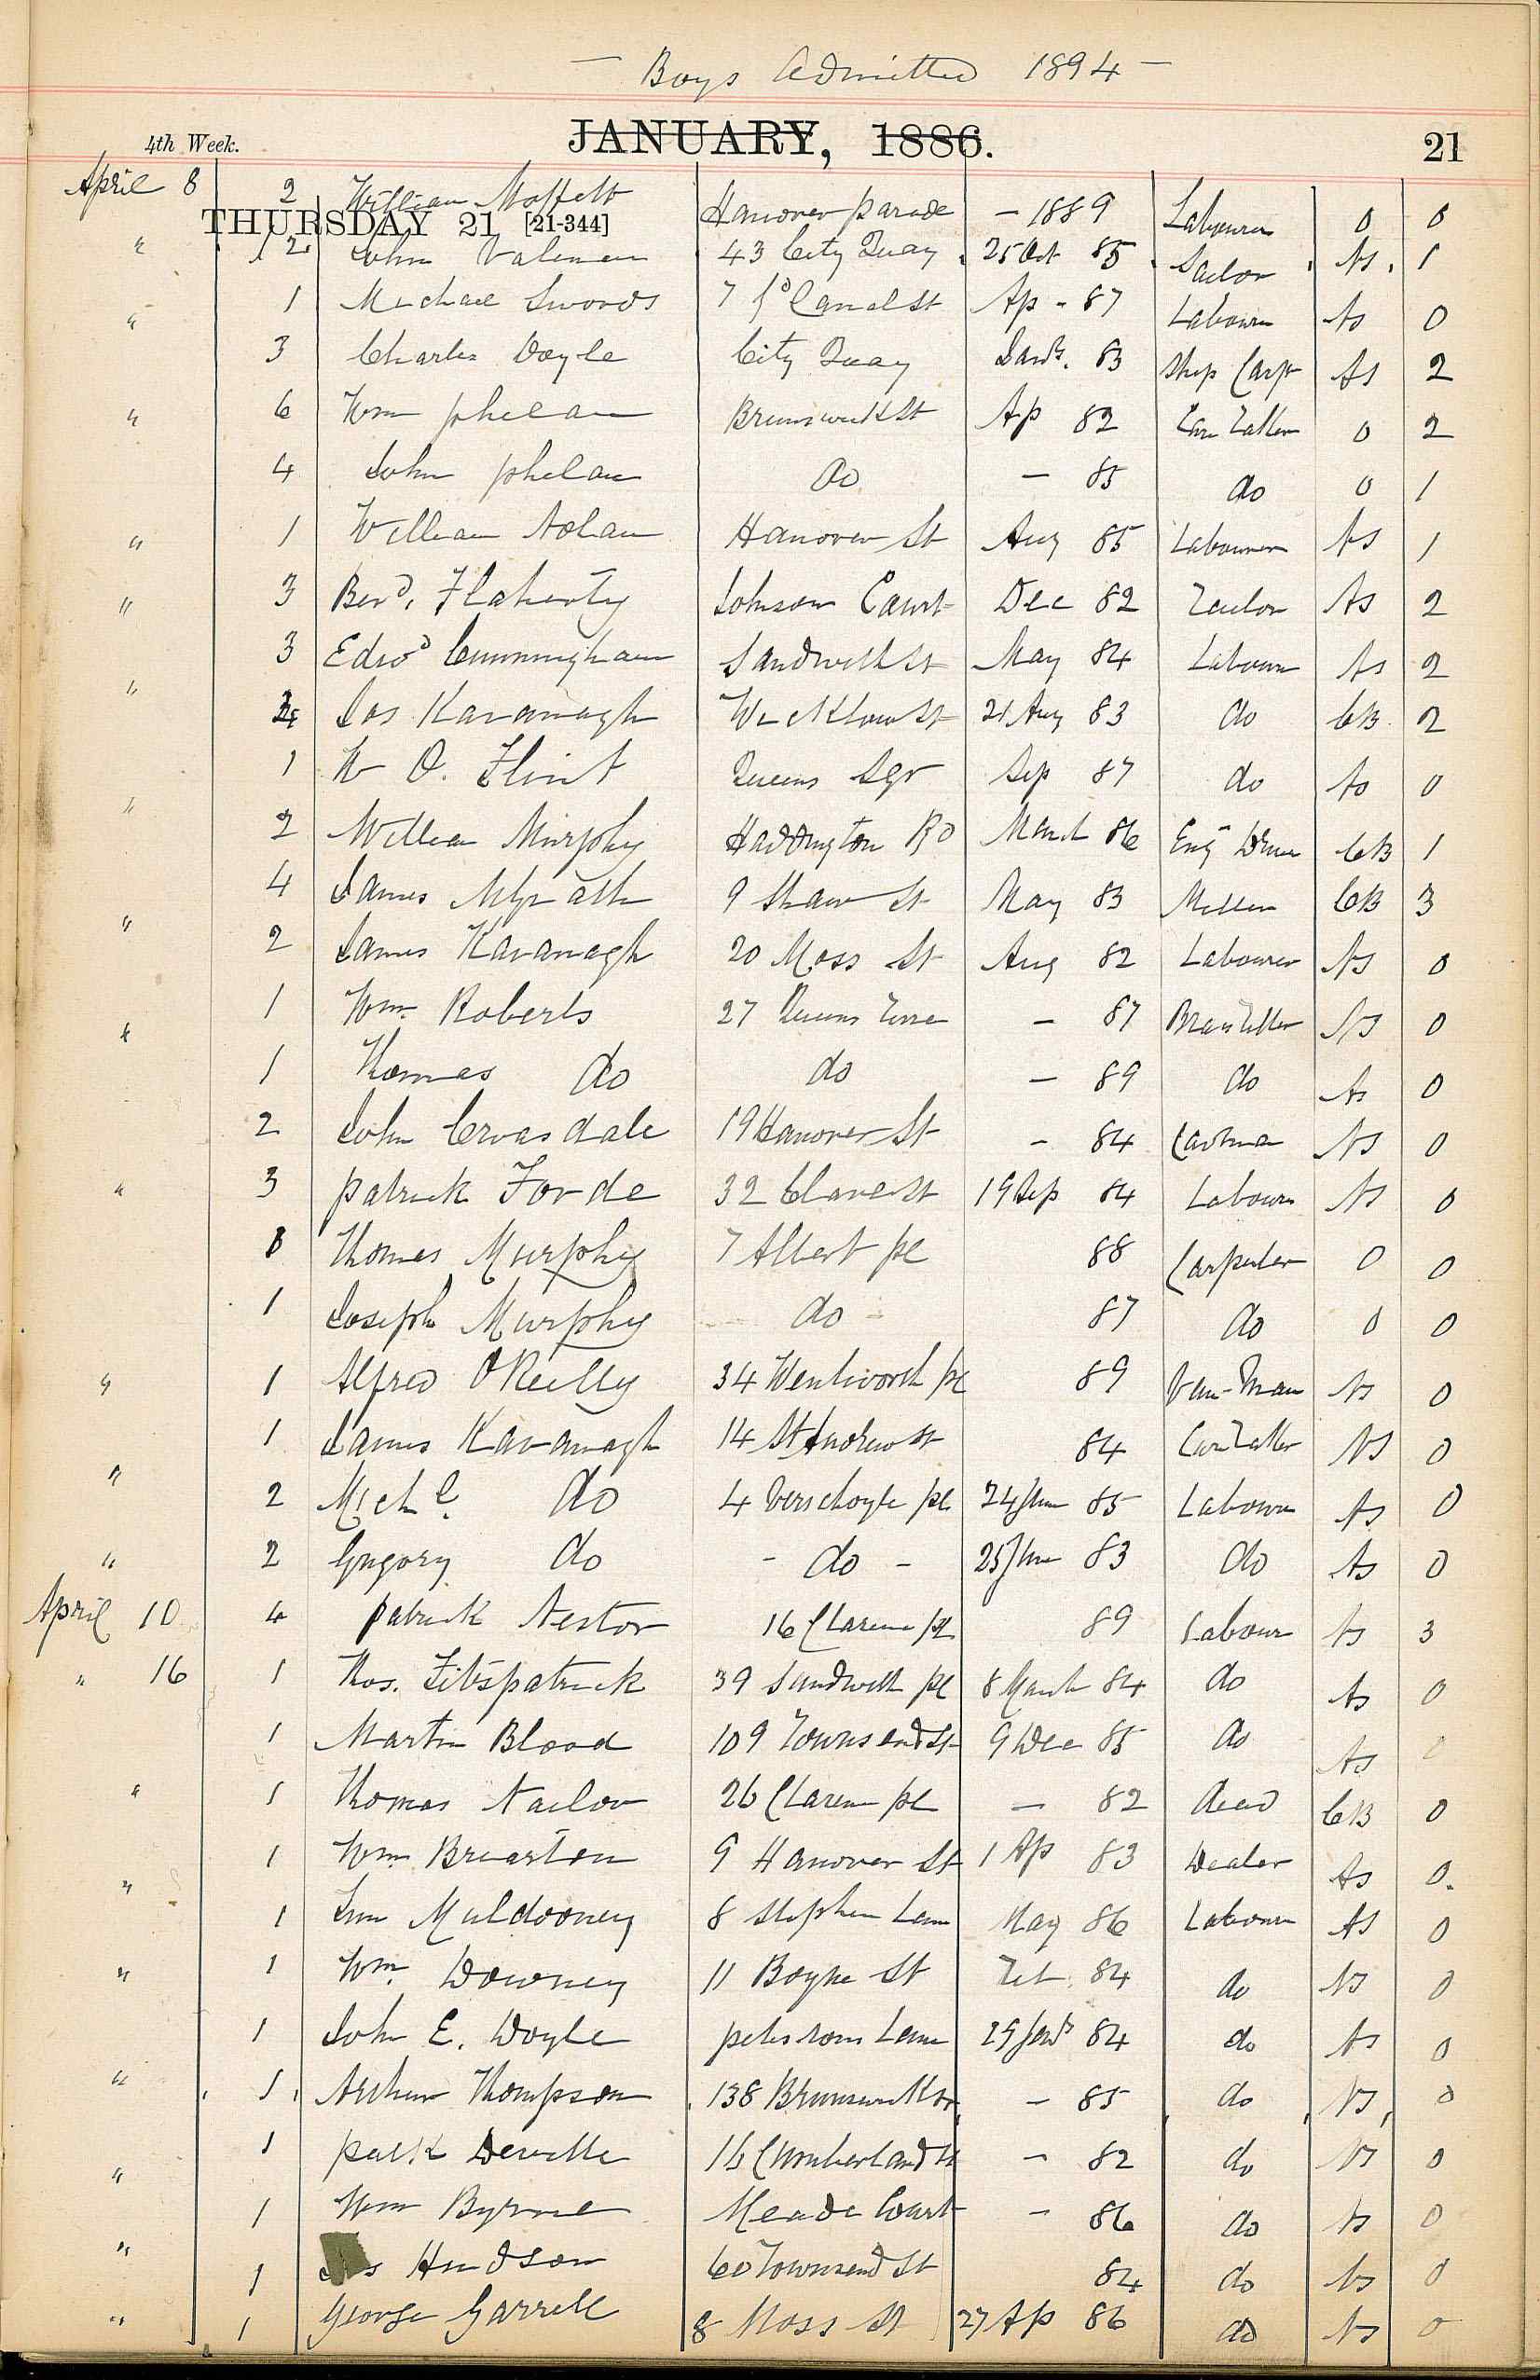 — Boys Admitted 1894 —
4th Week. JANUARY, 1886. 21
April 8 2 William Moffett Hanover parade — 1889 Labourer 0 0
THURSDAY 21 [21-344]
" 2 John Valeman 43 City Quay 25 Oct 85 Sailor NS 1
" 1 Michael Swords 7 Canal St Ap - 87 Labourer NS 0
3 Charles Doyle City Quay Jany. 83 Ship Carpr NS 2
" 6 Wm phelan Brunswick St Ap 82 0 2
4 John phelan do — 85 do 0 1
" 1 William Nolan Hanover St Aug 85 Labourer NS 1
" 3 Berd. Flaherty Johnson Court Dec 82 Tailor NS 2
3 Edwd Cunningham Sandwith St May 84 Labourer NS 2
" Jas Kavanagh Wicklow St 21 Aug 83 do CB 2
1 W O. Flint Queens Sqr Sep 87 do NS 0
" 2 William Murphy Haddington Rd March 86 Eng Driver CB 1
4 James McGrath 9 Shaw St May 83 Miller CB 3
" 2 James Kavanagh 20 Moss St Aug 82 Labourer NS 0
1 Wm. Roberts 27 Queens Terrce — 87 NS 0
" 1 Thomas do do — 89 do NS 0
2 John Croasdale 19 Hanover St - 84 Carman NS 0
" 3 patrick Forde 32 Clare St 19 Sep 84 Labourer NS 0
Thomas Murphy 7 Albert pl 88 Carpenter 0 0
1 Joseph Murphy do - 87 do 0 0
" 1 Alfred O'Reilly 34 Wentworth pl 89 Van-Man NS 0
1 James Kavanagh 14 St Andrew St 84 NS 0
" 2 Michl. do 4 Verschoyle pl 24 June 85 Labourer NS 0
" 2 Gregory do - do - 25 June 83 do NS 0
April 10 4 patrick Nestor 16 Clarence pl 89 Labourer NS 3
" 16 1 Thos. Fitzpatrick 39 Sandwith pl 8 March 84 do NS 0
1 Martin Blood 109 Townsend St 9 Dec 85 do NS 0
" 1 Thomas Nailor 26 Clarence pl — 82 dead CB 0
1 Wm Brearton 9 Hanover St 1 Ap 83 Dealer NS 0.
" 1 Muldooney 8 Stephen Lane May 86 Labourer NS 0
" 1 Wm. Downey 11 Boyne St Feb 84 do NS 0
1 John E. Doyle petersons Lane 29 Jany 84 do NS 0
" 1 Arthur Thompson 138 Brunswick St — 85 do NS 0
1 patk Deville 16 Cumberland St - 82 do NS 0
" 1 Wm Byrne Meade Court - 86 do NS 0
" 1 Hudson 60 Townsend St 84 do NS 0
" 1 George Garrett 8 Moss St 27 Ap 86 do NS 0